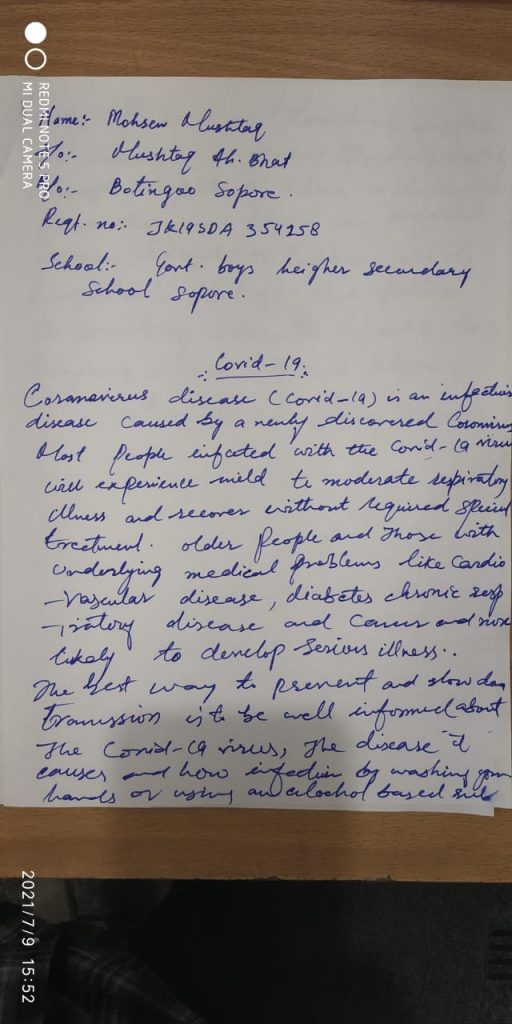 Name:- Mohsen Mushtaq
S/o:- Mushtaq Ah. Bhat
R/o:- Botingoo Sopore.
Regt. no:- JK19SDA 354258
School:- Govt. boys heigher secondary
School Sopore.
Covid-19
Coronavirus disease (Covid-19) is an infectius
disease caused by a newly discovered Coronvirus
Most People infected with the Covid-19 virus
will experience mild to moderate respiratory
illness and recover without required special
treatment. older People and Those with
underlying medical problems like Cardio
-Vascular disease, diabetes chronic resp
-iratory disease and Cancer and more
likely to develop Serious illness..
The best way to prevent and slow down
tranmission is to be well informed about
The Covid-19 virus, The disease it
causes and how infection by washing your
hands or using an alochol based rub
REDMI NOTE 5 PRO
MI DUAL CAMERA
2021/7/9 15:52